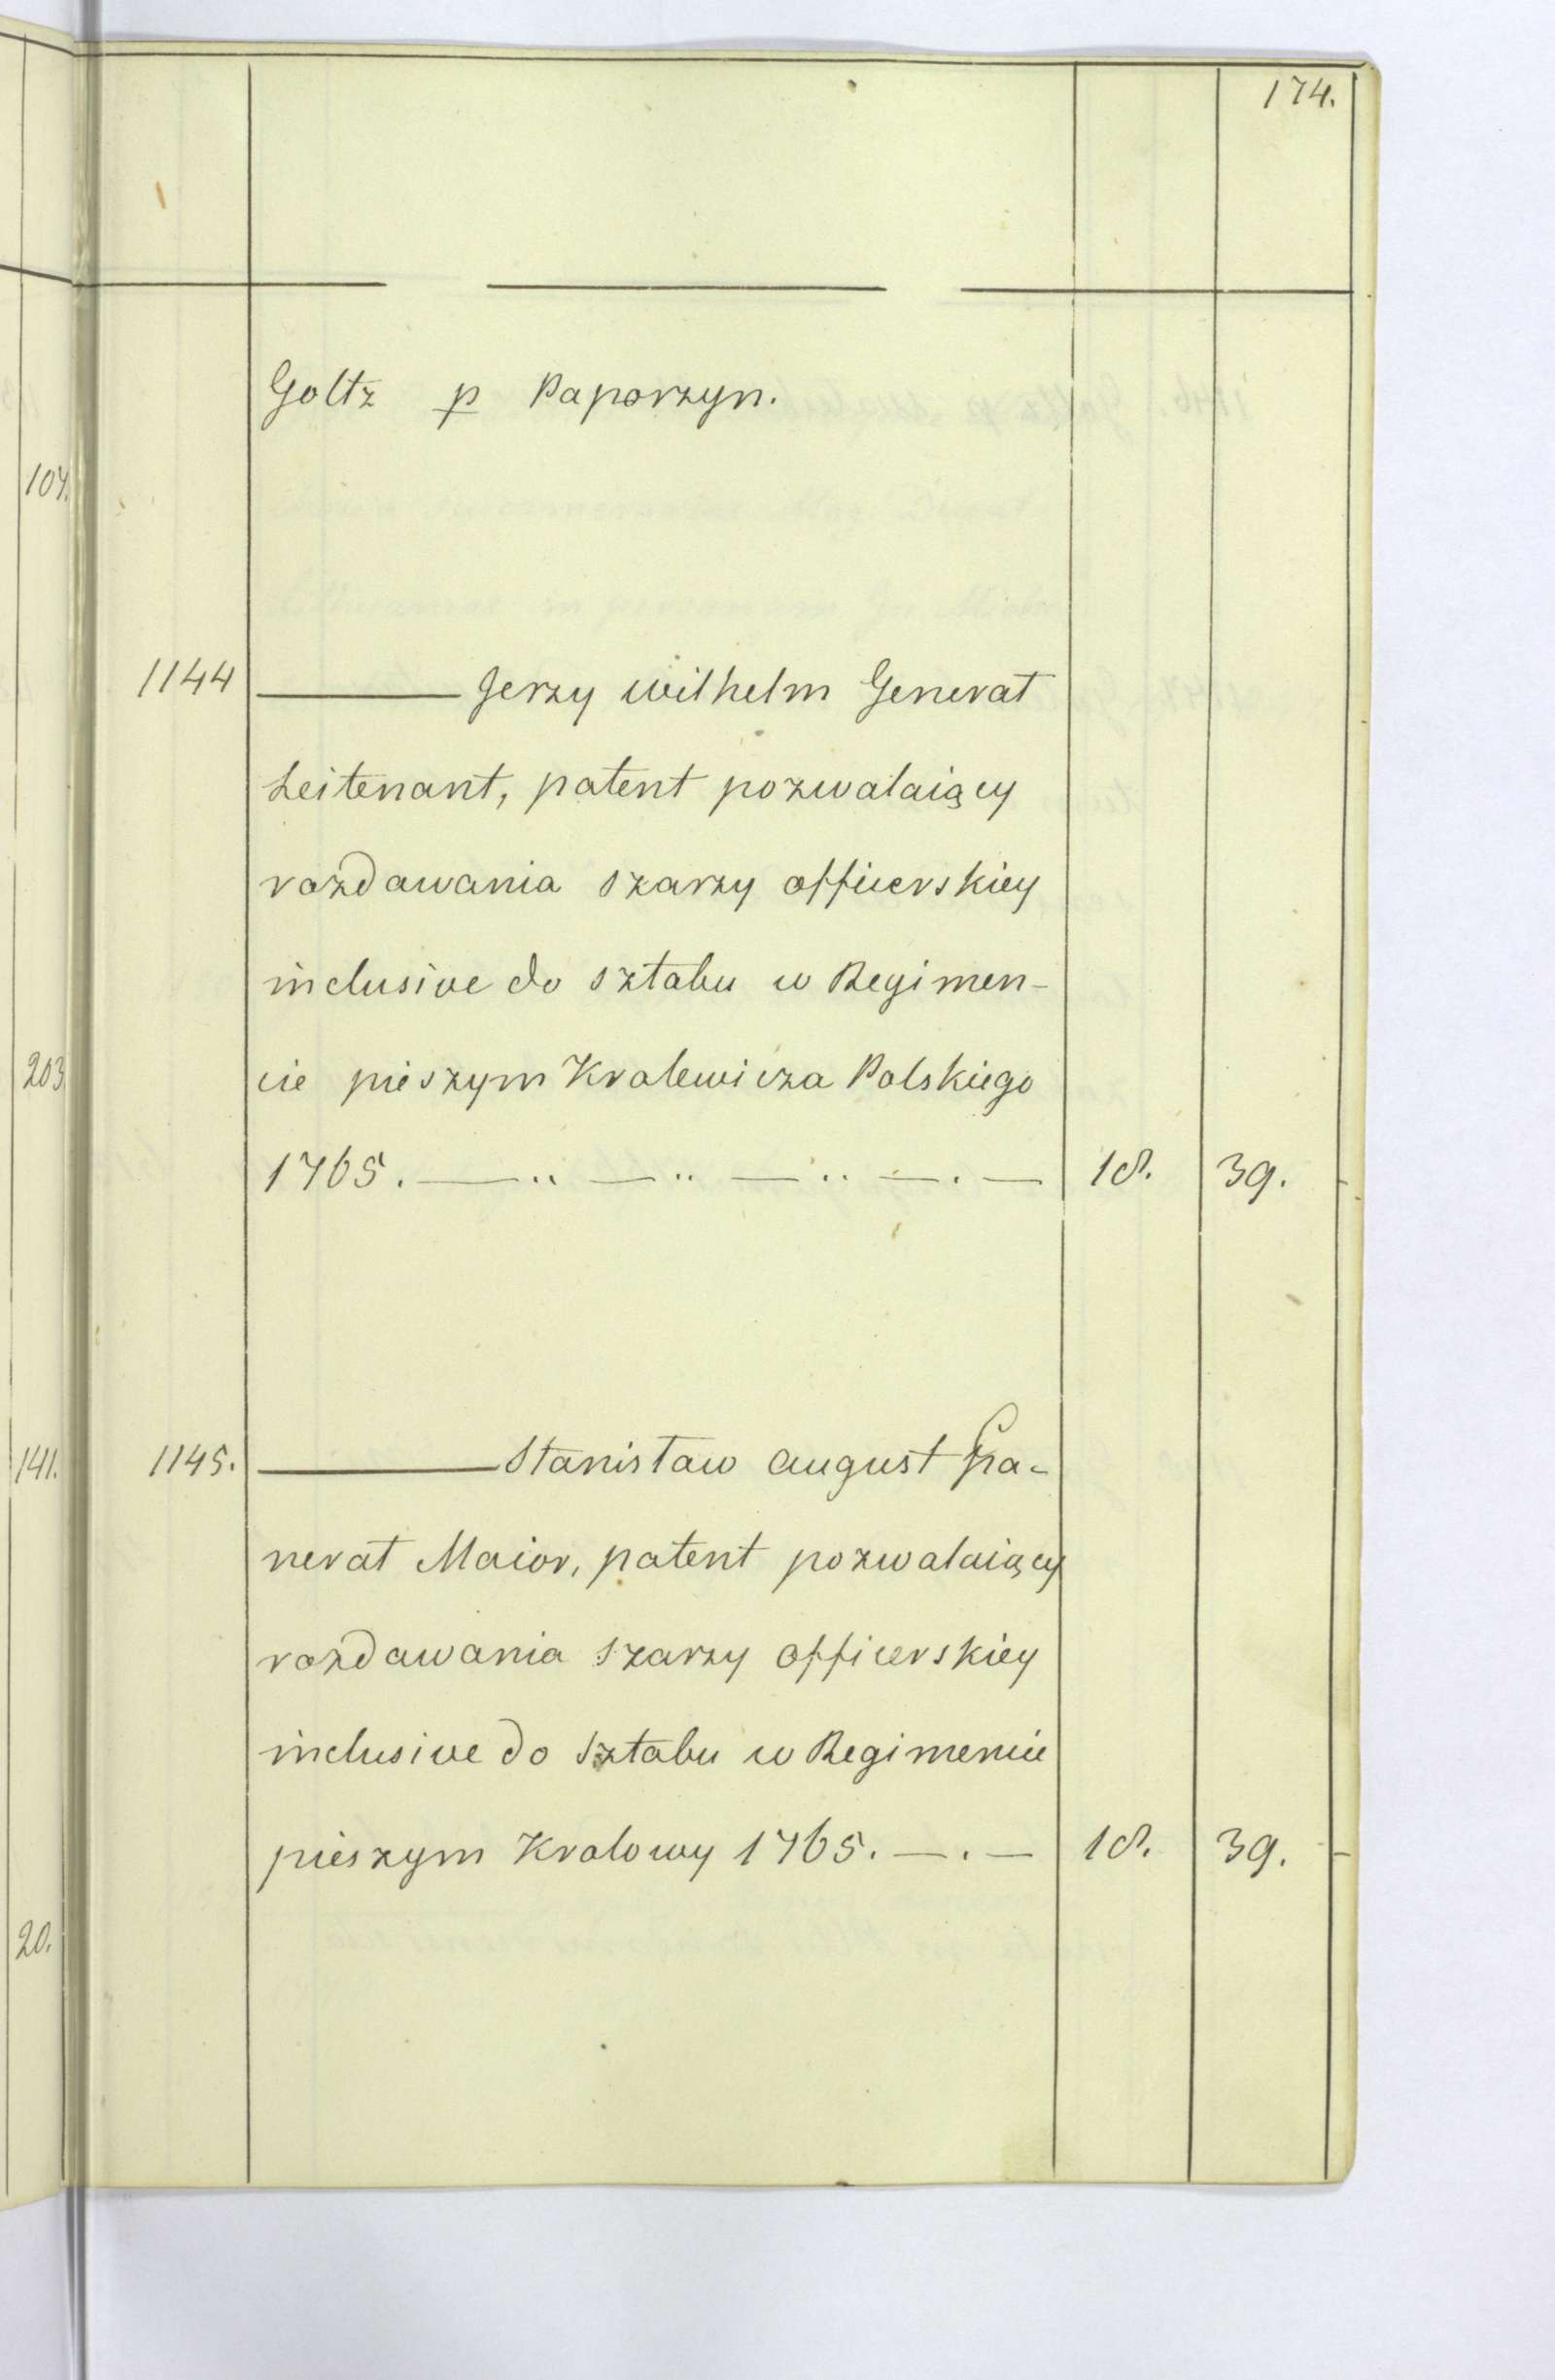 174.
Goltz p Paporzyn.
107.
1144 ——— Jerzy Wilhelm Generał
Leitenant, patent pozwalaiący
rozdawania szarzy officerskiey
inclusive do sztabu w Regimen-
203
cie pieszym Kralewicza Polskiego
1765. —..—..—..—.— 18. 39.
141.
1145. ——— Stanisław August
nerał Maior, patent pozwalaiący
rozdawania szarzy officerskiey
inclusive do sztabu w Regimencie
pieszym Kralowy 1765. —.— 18. 39.
20.